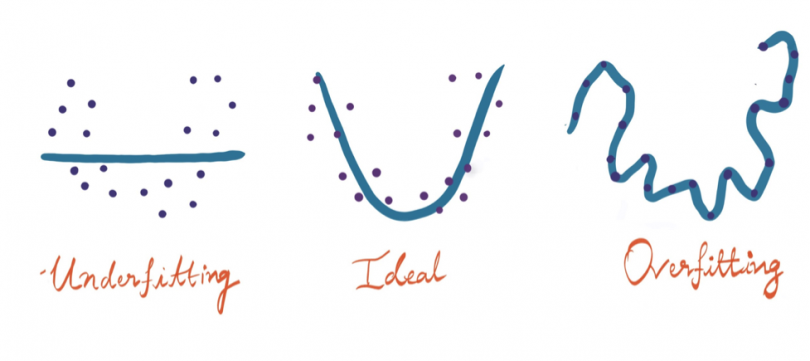 Underfitting
Ideal
Overfitting